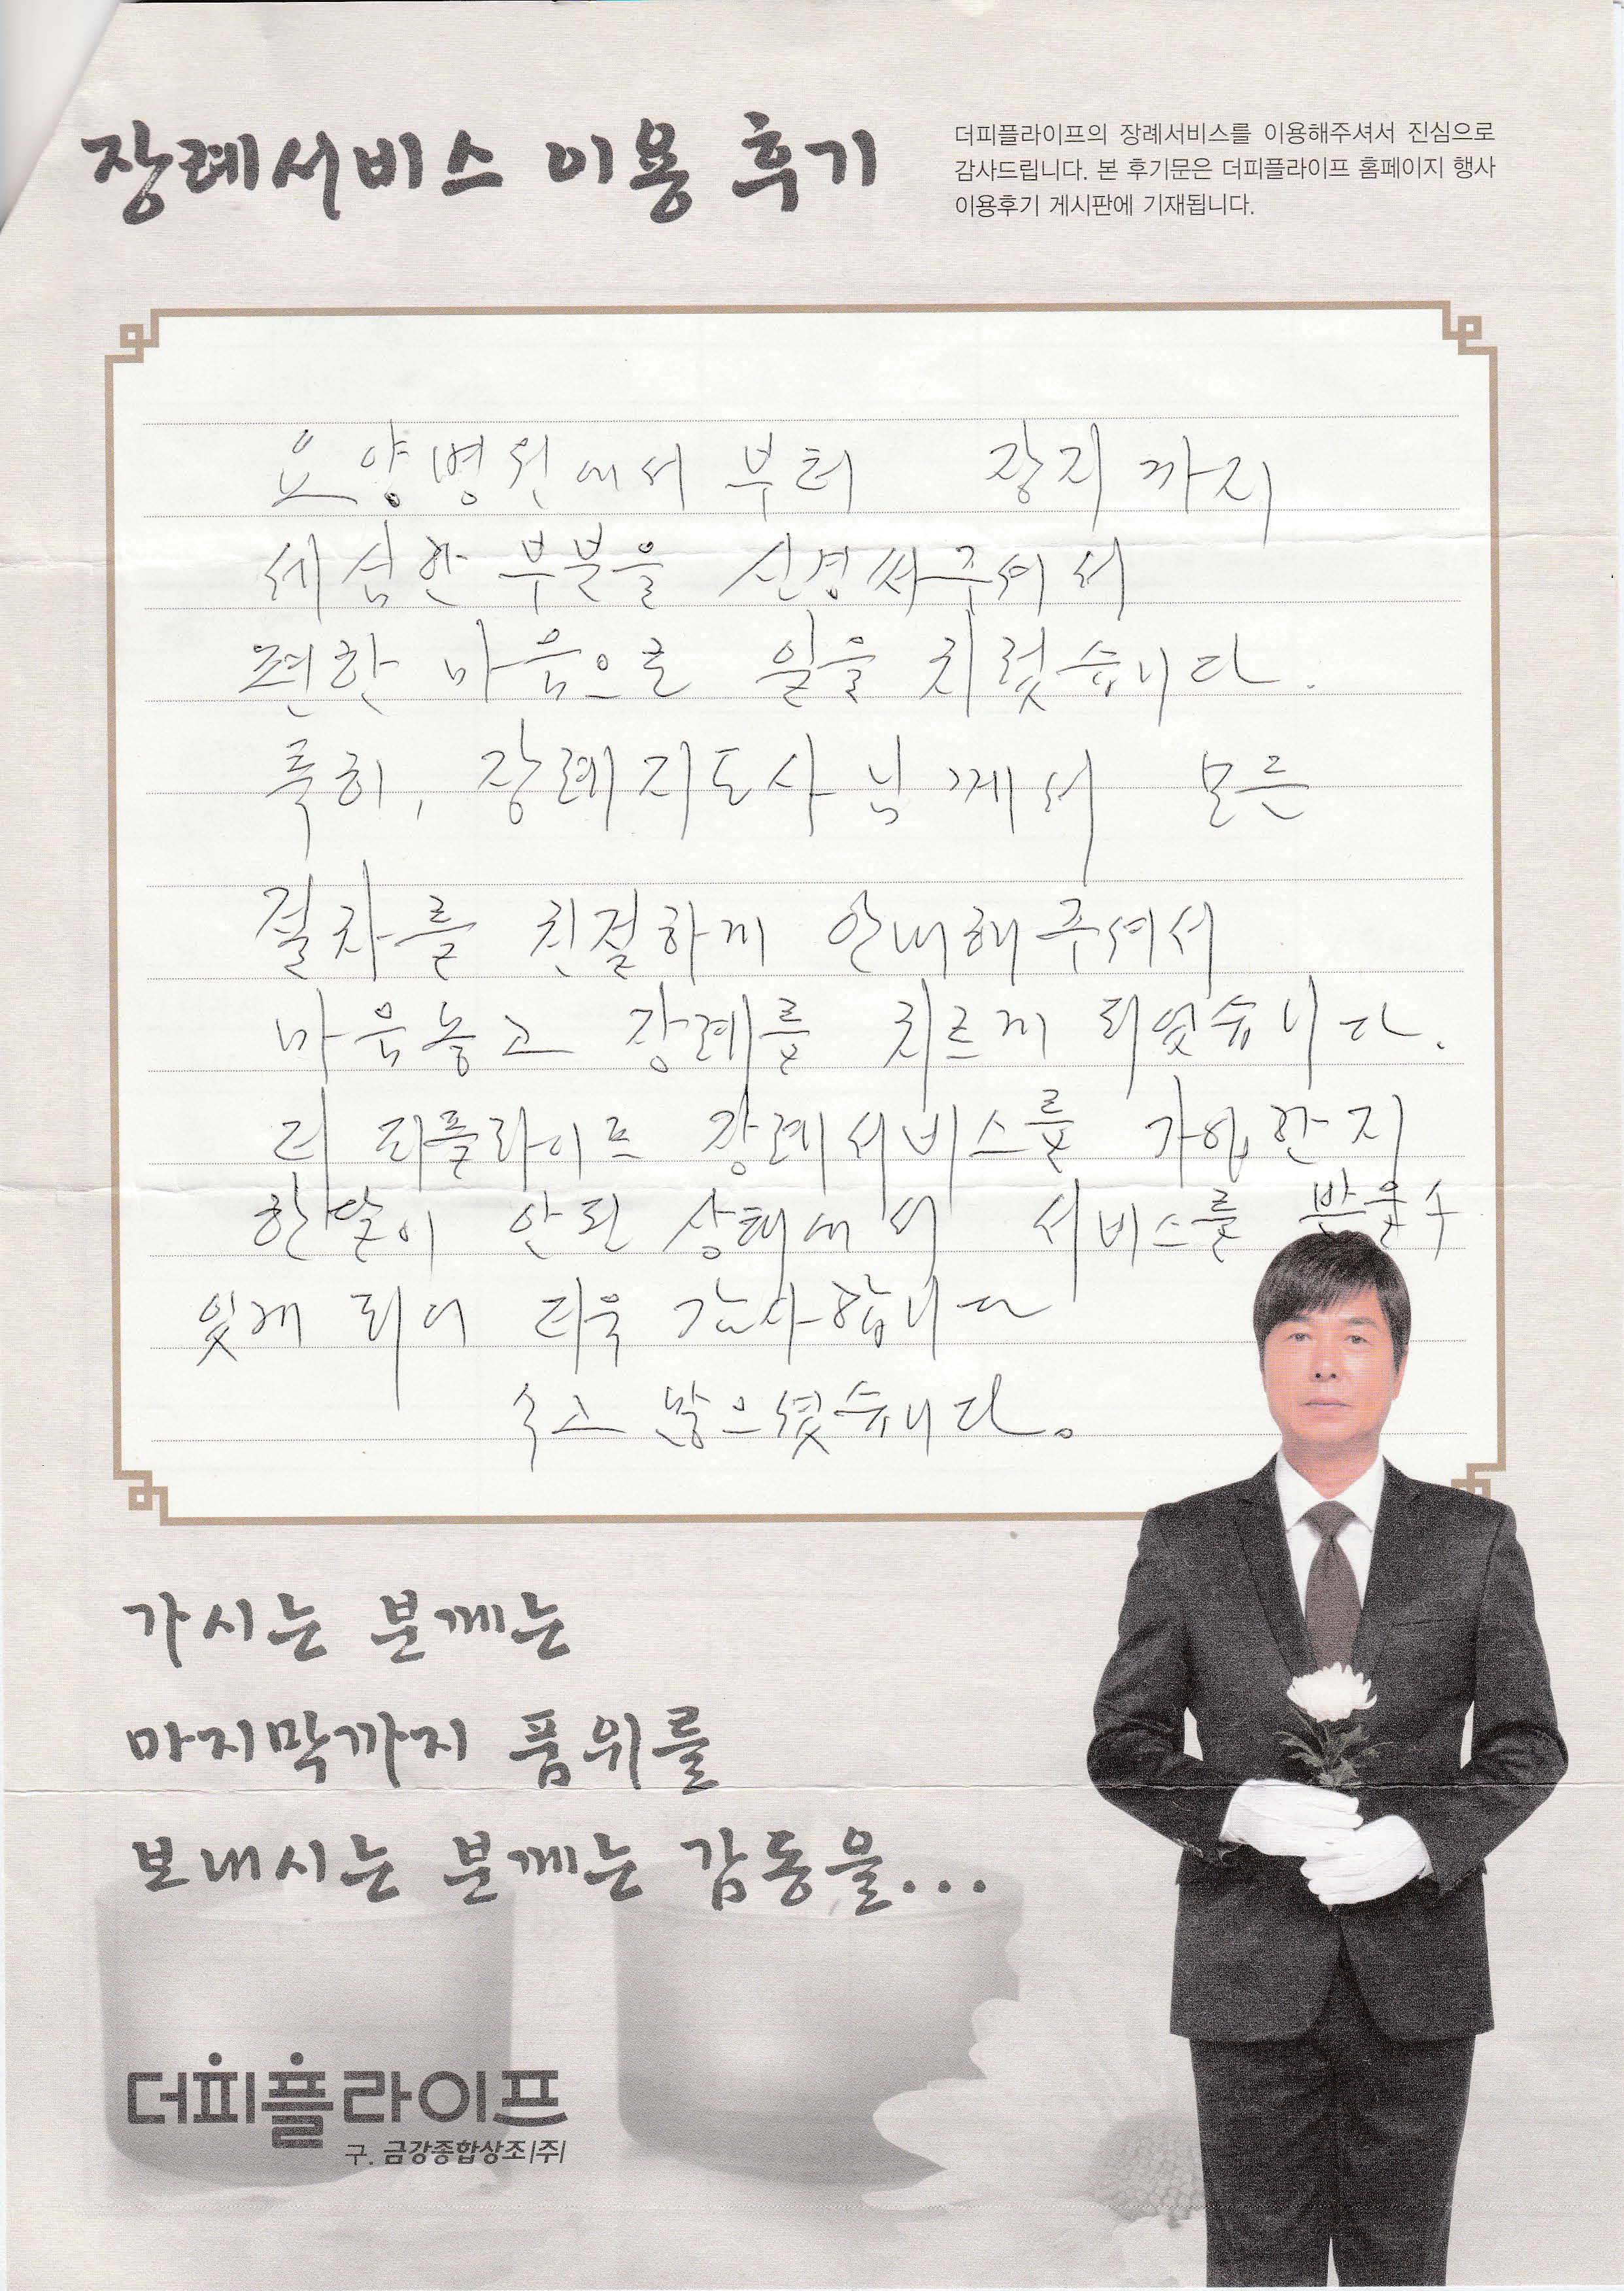 장례서비스 이용 후기
더피플라이프의 장례서비스를 이용해주셔서 진심으로
감사드립니다. 본 후기문은 더피플라이프 홈페이지 행사
이용후기 게시판에 기재됩니다.
요양병원에서부터 장지까지
세심한 부분을 신경써주셔서
편한 마음으로 일을 치렀습니다.
특히, 장례지도사님께서 모든
절차를 친절하게 안내해주셔서
마음놓고 장례를 치르게 되었습니다.
더 피플라이프 장례서비스를 가입한지
한달이 안된 상태에서 서비스를 받을수
있게 되어 더욱 감사합니다
수고 많으셨습니다.
가시는 분께는
마지막까지 품위를
보내시는 분께는 감동을...
더피플라이프
구. 금강종합상조|주|